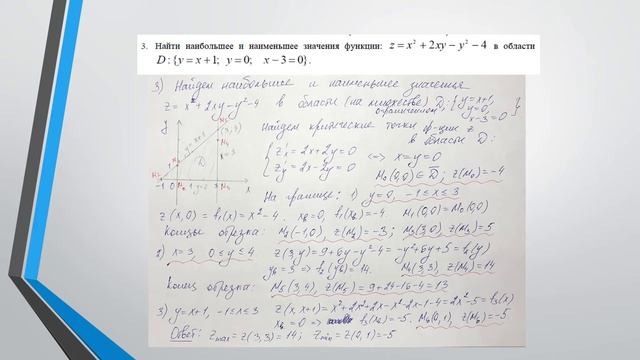 3. Найти наибольшее и наименьшее значения функции: z = x² + 2xy − y² − 4 в области
D: {y = x + 1; y = 0; x − 3 = 0}.
3) Найдем наибольшее и наименьшее значения
z = x² + 2xy − y² − 4 в области (на множестве) D: { y = x+1, y = 0, x−3 = 0 }
ограниченной
Найдем критические точки ф-ции z
в области D:
{ z'x = 2x + 2y = 0
z'y = 2x − 2y = 0 <=> x = y = 0
M₀(0,0) ∈ D̅; z(M₀) = −4
y
y = x+1
(3,4)
x = 3
D
−1 0 1 y=0 3 x
На границе: 1) y = 0, −1 ≤ x ≤ 3
z(x,0) = f₁(x) = x² − 4. x₆ = 0, f₁(x₆) = −4 M₁(0,0) = M₀(0,0)
Концы отрезка: M₂(−1,0), z(M₂) = −3; M₃(3,0), z(M₃) = 5
2) x = 3, 0 ≤ y ≤ 4 z(3,y) = 9 + 6y − y² − 4 = −y² + 6y + 5 = f₂(y)
y₆ = 3 => f₂(y₆) = 14. M₄(3,3), z(M₄) = 14
Конец отрезка: M₅(3,4), z(M₅) = 9 + 24 − 16 − 4 = 13
3) y = x+1, −1 ≤ x ≤ 3 z(x, x+1) = x² + 2x² + 2x − x² − 2x − 1 − 4 = 2x² − 5 = f₃(x)
= 0 => f₃(x₆) = −5. M₆(0,1), z(M₆) = −5
Ответ: zmax = z(3,3) = 14; zmin = z(0,1) = −5